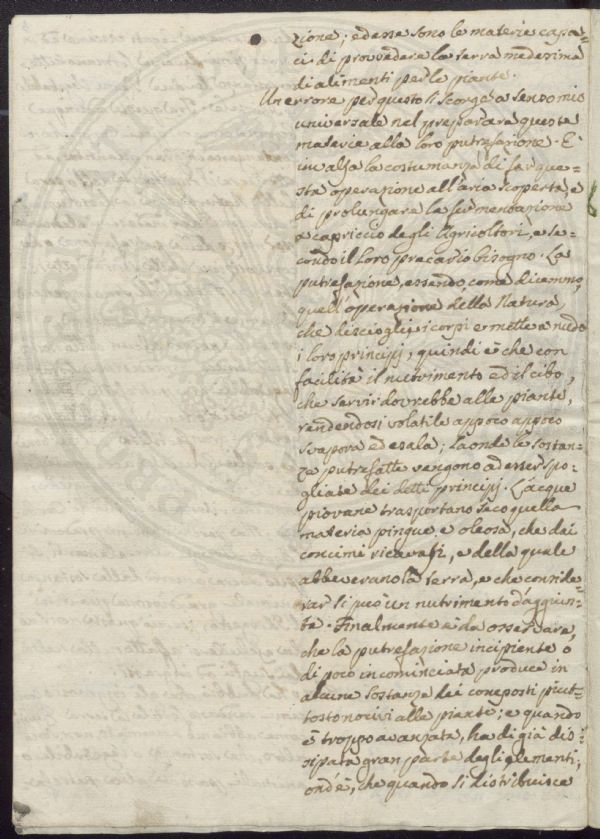 zione; ed esse sono le materie capa=
ci di provvedere la terra medesima
di alimenti per le piante.
Un errore per questo si scorge a senso mio
universale nel preparare queste
materie alla loro putrefazione. E'
in essa la costumanza di far que=
sta operazione all'aria scoperta, e
di prolungare la fermentazione
a capriccio degli Agricoltori, e se=
condo il loro precario bisogno. La
putrefazione, essendo, come dicemmo,
quell'operazione della Natura,
che discioglie i corpi e mette a nudo
i loro principj, quindi è che con
facilità il nutrimento ed il cibo,
che servir dovrebbe alle piante,
rendendosi volatile appoco appoco
svapora ed esala; laonde le sostan=
ze putrefatte vengono ad esser spo=
gliate dei detti principj. L'acque
piovane trasportano seco quella
materia pingue e oleosa, che dai
concimi ricavasi, e della quale
abbeverano la terra, e che conside=
rar si può un nutrimento d'aggiun=
ta. Finalmente è da osservare,
che la putrefazione incipiente o
di poco incominciata produce in
alcune sostanze dei composti piut=
tosto nocivi alle piante; e quando
è troppo avanzata, ha di già dis=
sipata gran parte degli elementi;
ond'è, che quando si distribuisce